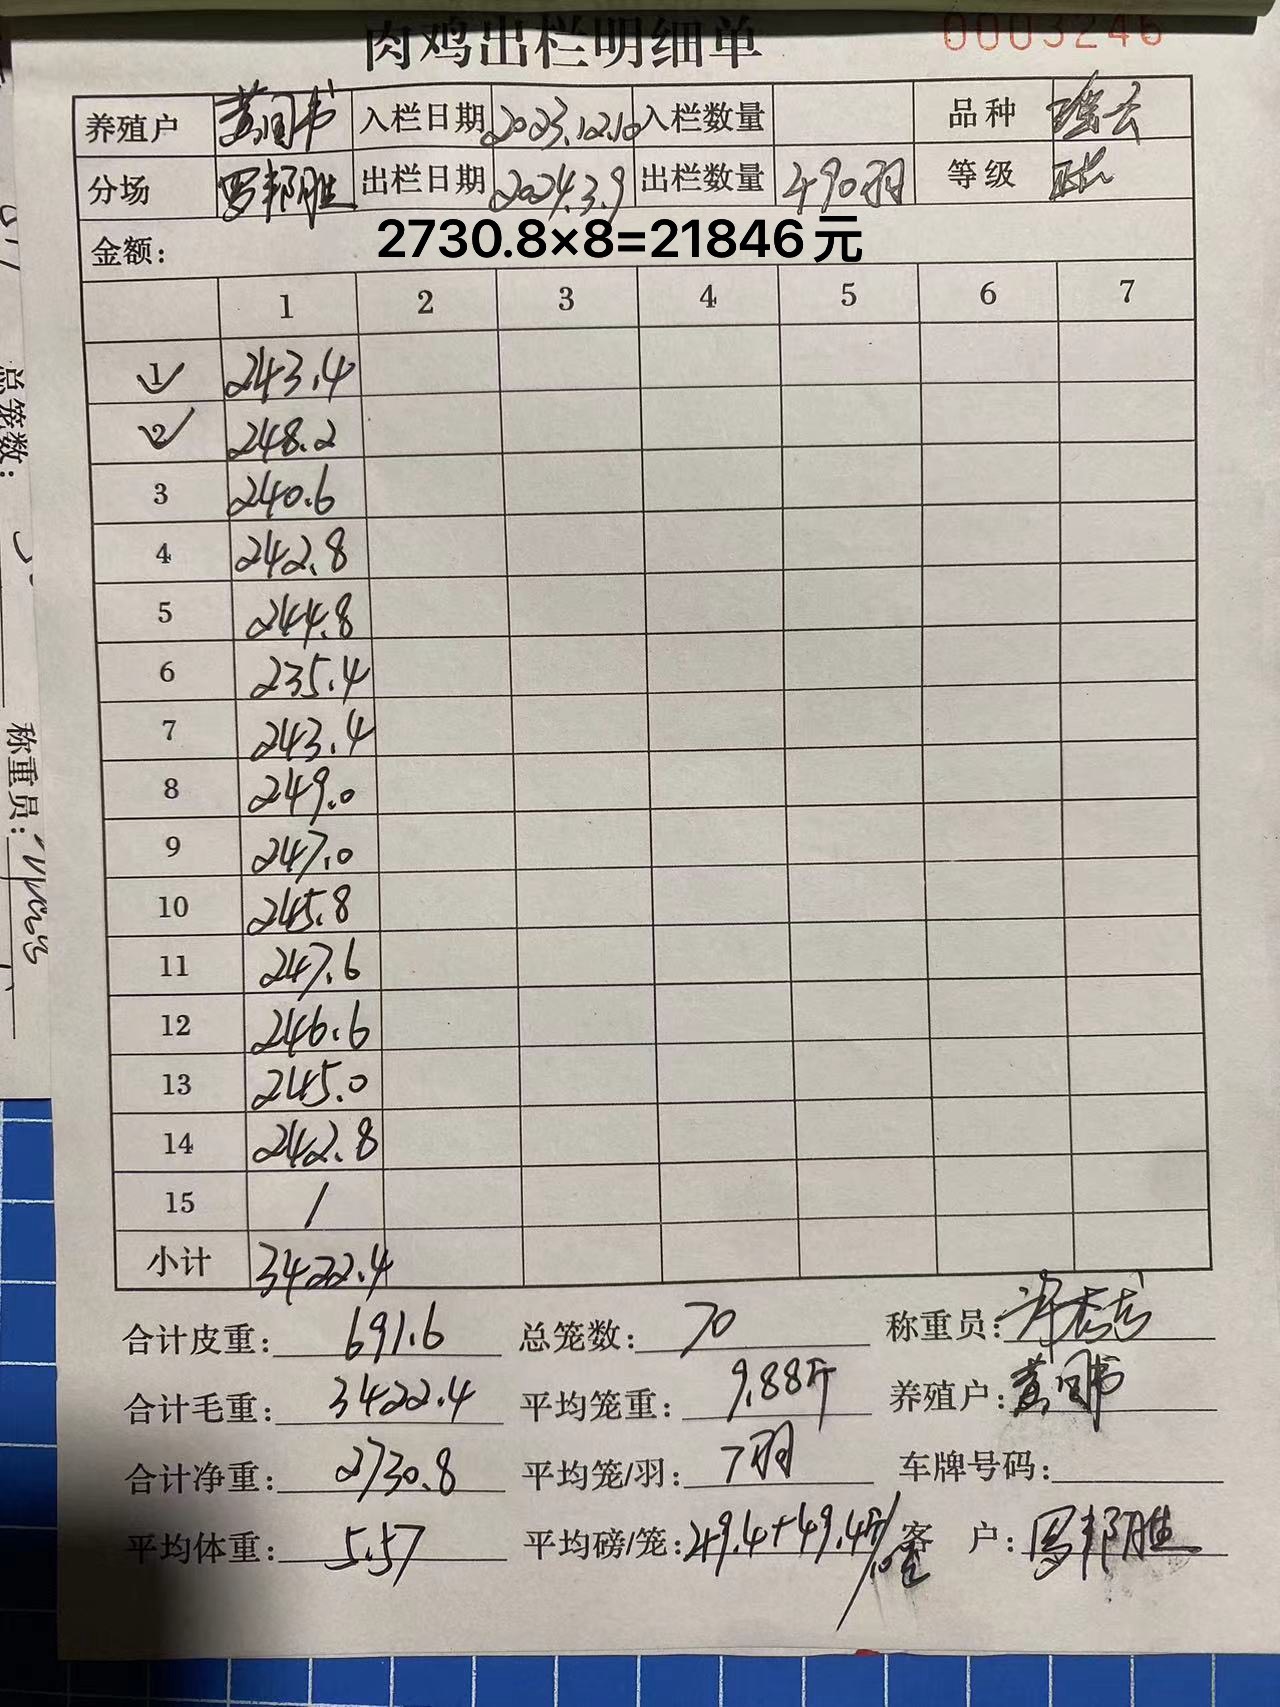 肉鸡出栏明细单 0003246
养殖户 入栏日期 2023.12.10 入栏数量 品种
分场 罗邦胜 出栏日期 2024.3.9 出栏数量 490羽 等级
金额: 2730.8×8=21846元
1 2 3 4 5 6 7
1 243.4
2 248.2
3 240.6
4 242.8
5 244.8
6 235.4
7 243.4
8 249.0
9 247.0
10 245.8
11 247.6
12 246.6
13 245.0
14 242.8
15 /
小计 3422.4
合计皮重: 691.6 总笼数: 70 称重员:
合计毛重: 3422.4 平均笼重: 9.88斤 养殖户:
合计净重: 2730.8 平均笼/羽: 7羽 车牌号码:
平均体重: 5.57 平均磅/笼: 49.4+49.4 客户: 罗邦胜
总笼数:
称重员: